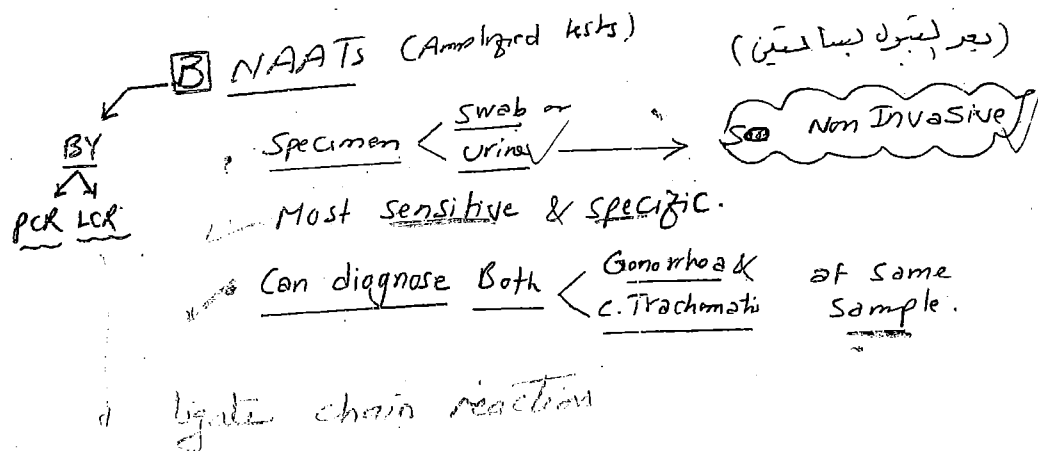 B NAATs (Amplified tests)
(بعد التبول بساعتين)
BY
PCR LCR
Specimen swab or
urine
So Non Invasive
Most sensitive & specific.
Can diagnose Both Gonorrhoa &
C. Trachomatis at same
sample.
ligate chain reaction